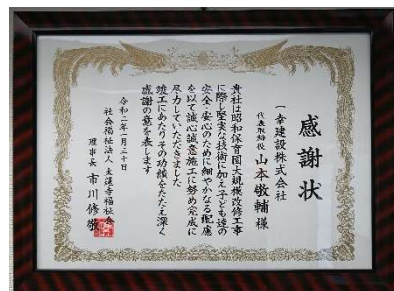 感謝状
一幸建設株式会社
代表取締役 山本敬輔様
貴社は昭和保育園大規模改修工事
に際し堅実な技術に加え子ども達の
安全・安心のために細やかなる配慮
を以て誠心誠意施工に努め完成に
尽力していただきました
竣工にあたりその功績をたたえ深く
感謝の意を表します
令和二年一月三十日
社会福祉法人 東蓮寺福祉会
理事長 市川修